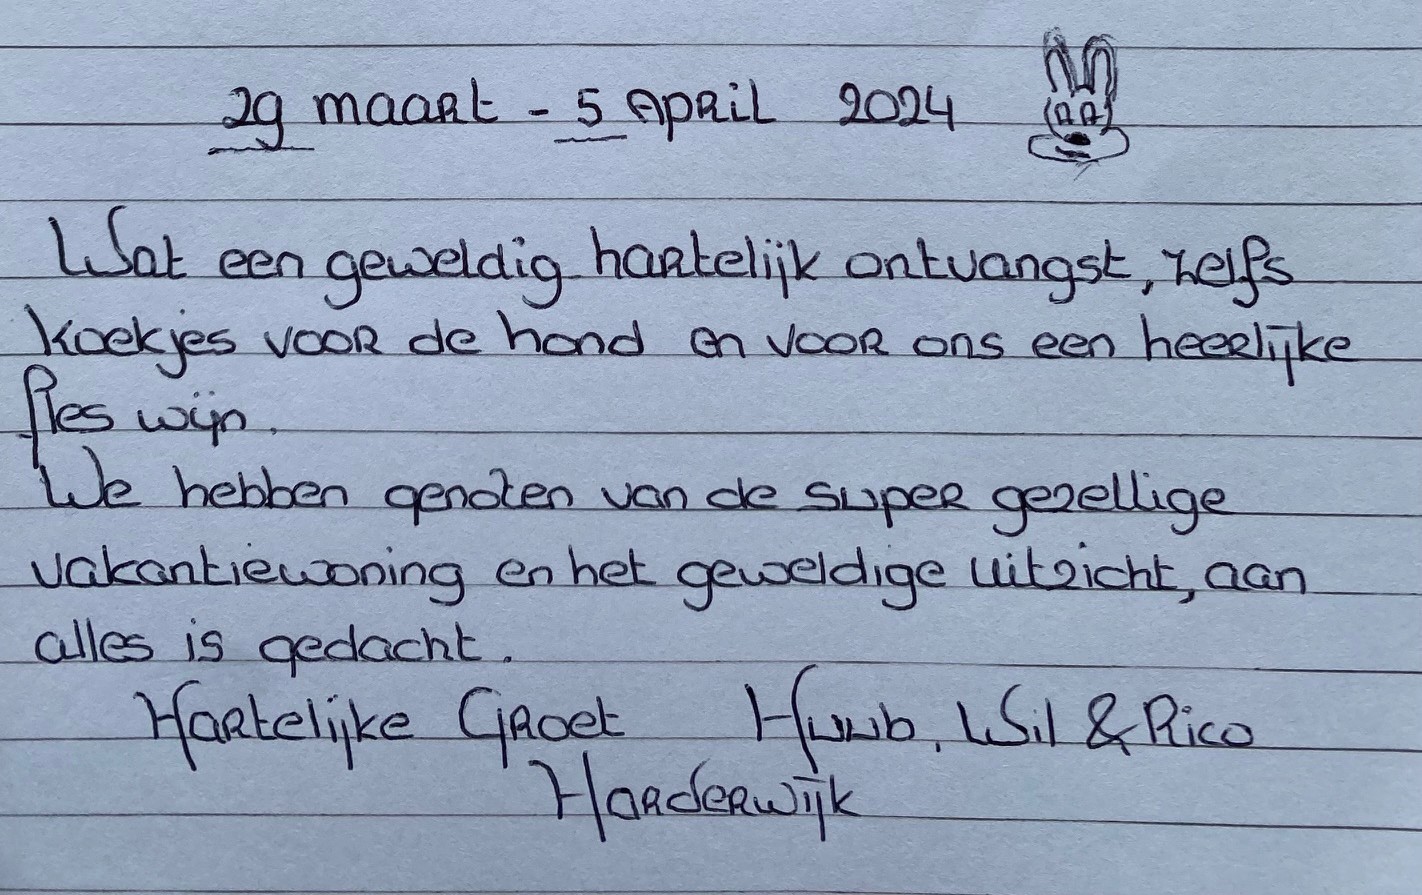 29 maart - 5 April 2024
Wat een geweldig hartelijk ontvangst, zelfs
koekjes voor de hond en voor ons een heerlijke
fles wijn.
We hebben genoten van de super gezellige
vakantiewoning en het geweldige uitzicht, aan
alles is gedacht.
Hartelijke Groet Huub, Wil & Rico
Harderwijk